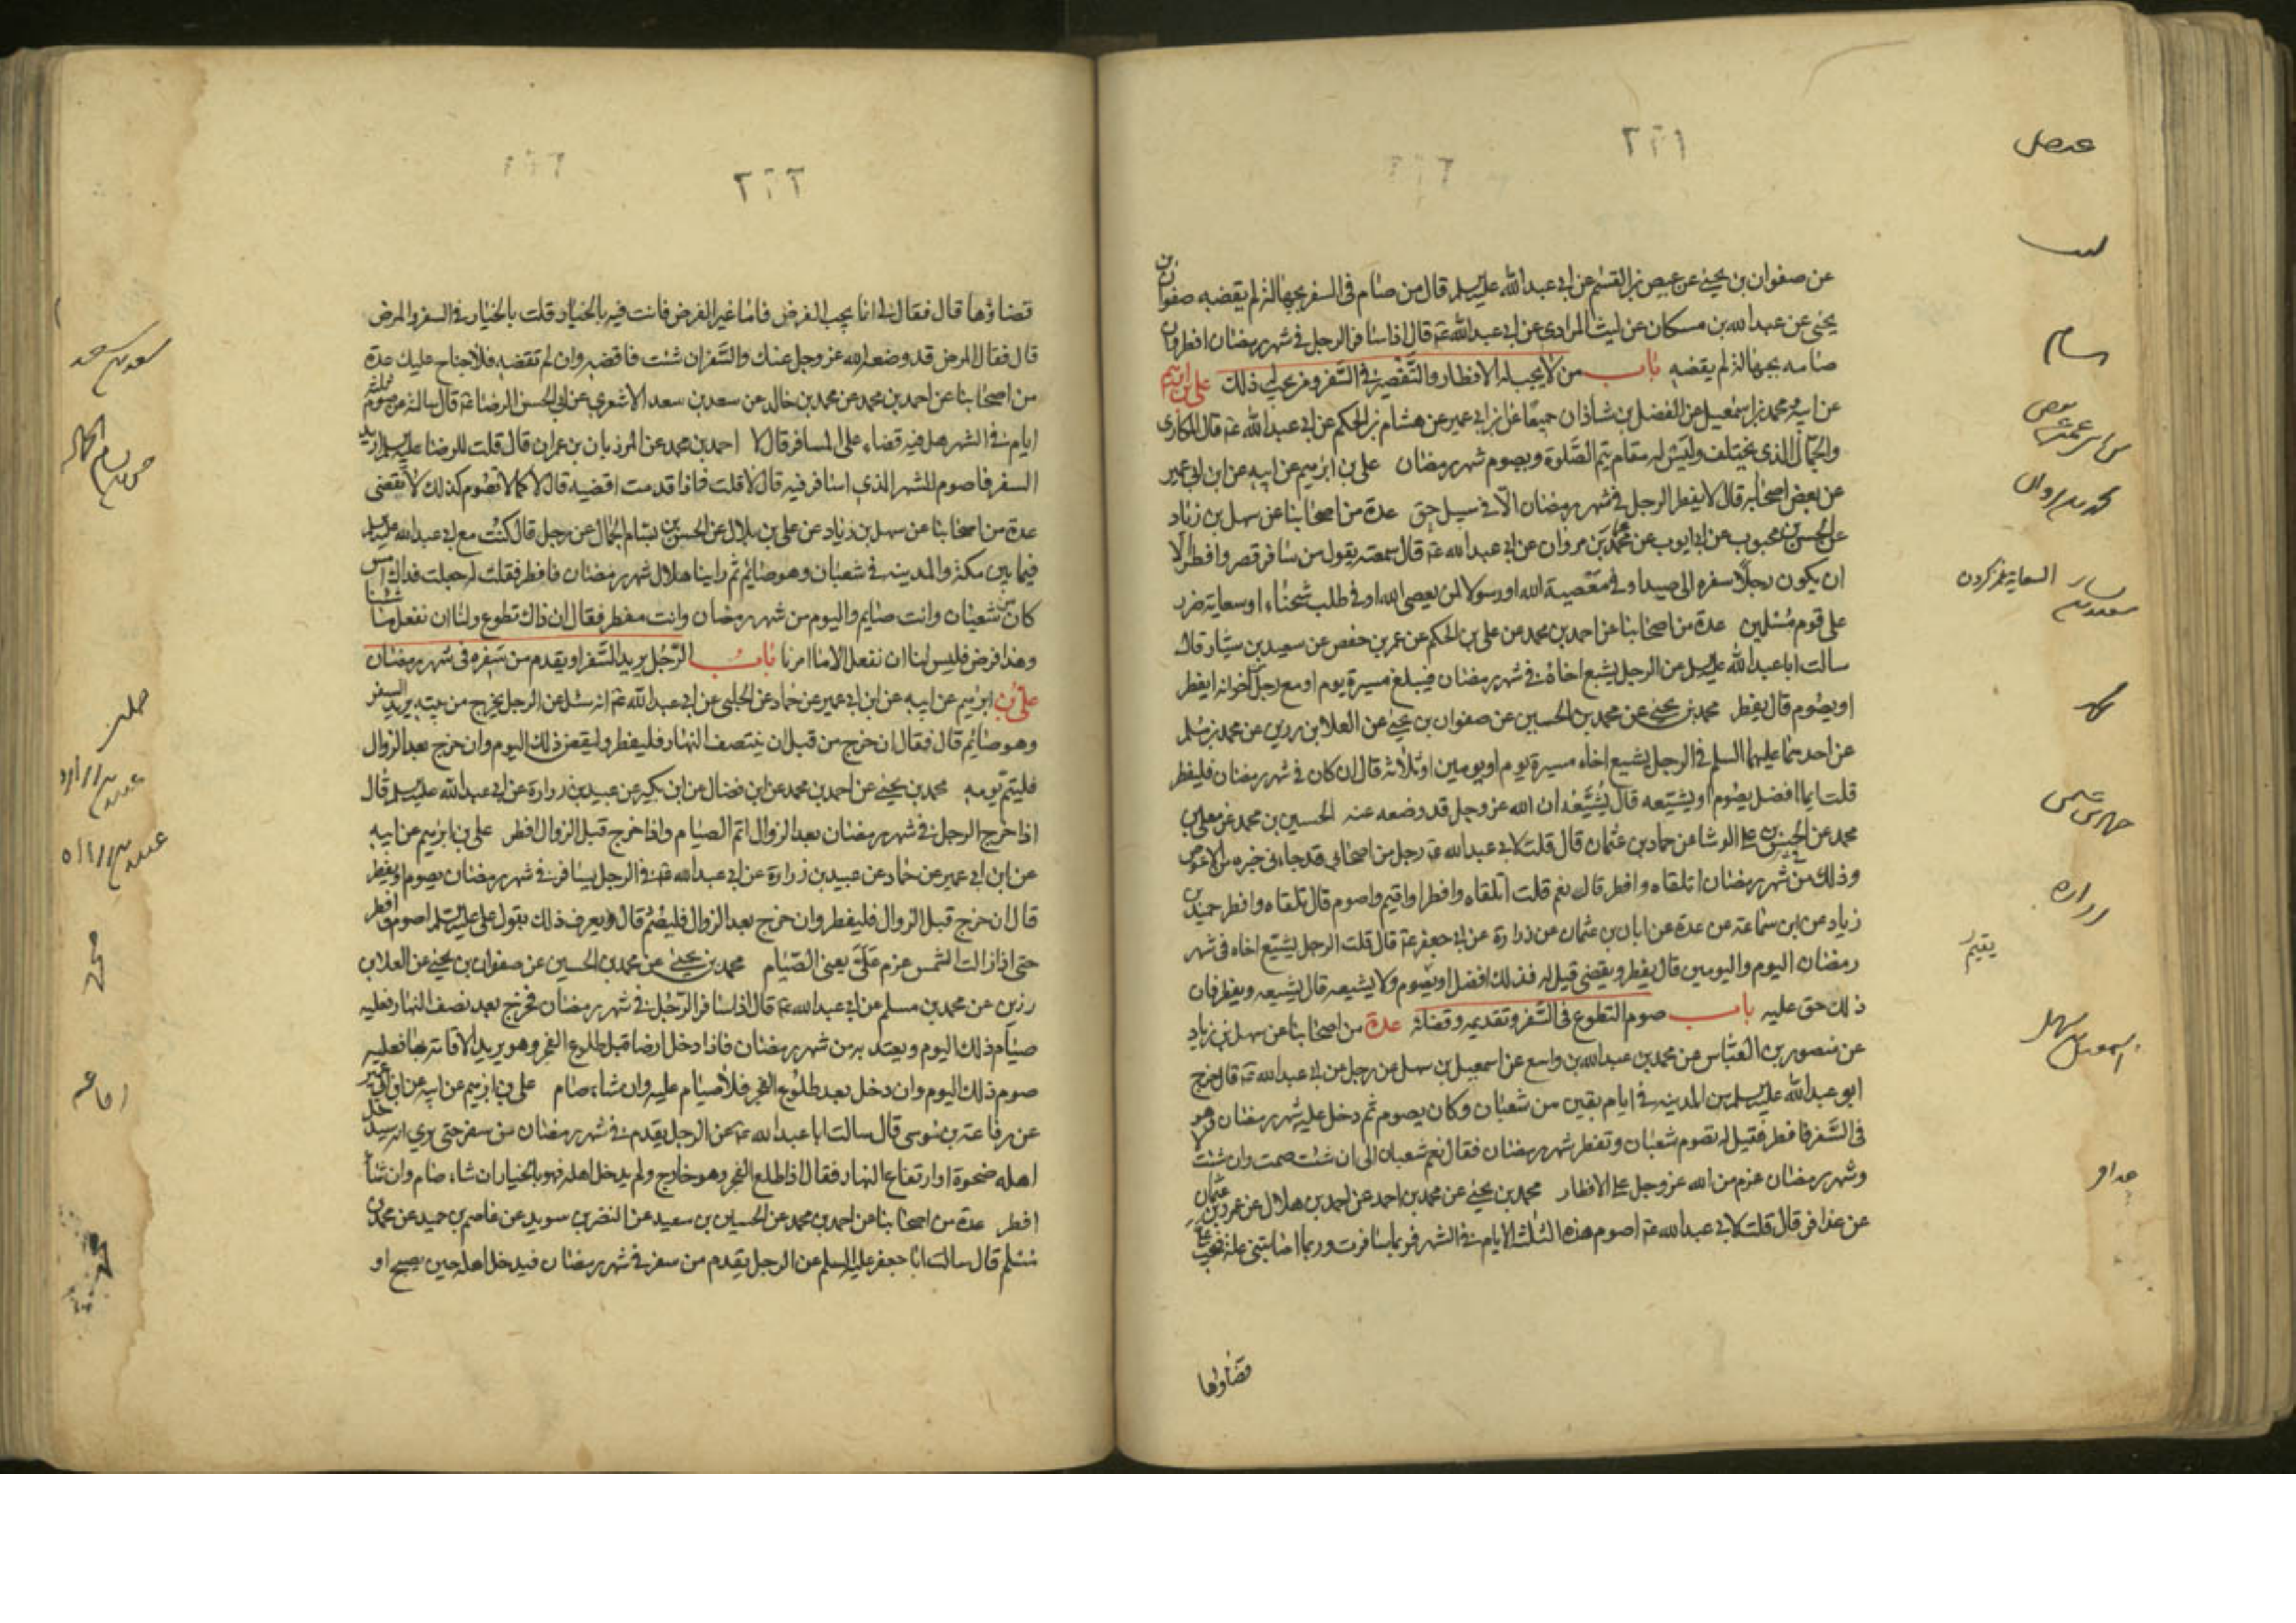 عن صفوان بن يحيى عن عيص بن القسم عن ابى عبد الله عليه السلم قال من صام فى السفر بجهالة لم يقضه صفوان بن
يحيى عن عبد الله بن مسكان عن ليث المرادى عن ابى عبد الله عه قال اذا سافر الرجل فى شهر رمضان افطر وان
صامه بجهالة لم يقضه باب من لا يجب له الافطار والتقصير فى السفر ومن يجب له ذلك على بن ابرهيم
عن ابيه ومحمد بن اسمعيل عن الفضل بن شاذان جميعا عن ابن ابى عمير عن هشام بن الحكم عن ابى عبد الله عه قال المكارى
والجمال الذى يختلف وليس له مقام يتم الصلوة ويصوم شهر رمضان على بن ابرهيم عن ابيه عن ابن ابى عمير
عن بعض اصحابه قال لا يفطر الرجل فى شهر رمضان الا فى سبيل حق عدة من اصحابنا عن سهل بن زياد
عن الحسن بن محبوب عن ابى ايوب عن محمد بن مروان عن ابى عبد الله عه قال سمعته يقول من سافر قصر وافطر الا
ان يكون رجلا سفره الى صيد او فى معصية الله او رسولا لمن يعصى الله او فى طلب شحناء او سعاية ضرر
على قوم مسلمين عدة من اصحابنا عن احمد بن محمد عن على بن الحكم عن عمر بن حفص عن سعيد بن يسار قال
سالت ابا عبد الله عليه السلم عن الرجل يشيع اخاه فى شهر رمضان فيبلغ مسيرة يوم او مع رجل من اخوانه ايفطر
او يصوم قال يفطر محمد بن يحيى عن محمد بن الحسين عن صفوان بن يحيى عن العلا بن رزين عن محمد بن مسلم
عن احدهما عليهما السلم فى الرجل يشيع اخاه مسيرة يوم او يومين او ثلاثة قال ان كان فى شهر رمضان فليفطر
قلت ايما افضل يصوم او يشيعه قال يشيعه ان الله عز وجل قد وضعه عنه الحسين بن محمد عن معلى بن
محمد عن الحسن بن على الوشا عن حماد بن عثمان قال قلت لابى عبد الله عه رجل من اصحابى قد جاءنى خبره من الاعوص
وذلك فى شهر رمضان اتلقاه وافطر قال نعم قلت اتلقاه وافطر او اقيم واصوم قال تلقاه وافطر حميد بن
زياد عن ابن سماعة عن عدة عن ابان بن عثمان عن زرارة عن ابى جعفر عه قال قلت الرجل يشيع اخاه فى شهر
رمضان اليوم واليومين قال يفطر ويقضى قيل له فذلك افضل او يصوم ولا يشيعه قال يشيعه ويفطر فان
ذلك حق عليه باب صوم التطوع فى السفر وتقديمه وقضائه عدة من اصحابنا عن سهل بن زياد
عن منصور بن العباس عن محمد بن عبد الله بن واسع عن اسمعيل بن سهل عن رجل عن ابى عبد الله عه قال خرج
ابو عبد الله عليه السلم من المدينة فى ايام بقين من شعبان وكان يصوم ثم دخل عليه شهر رمضان وهو
فى السفر فافطر فقيل له تصوم شعبان وتفطر شهر رمضان فقال نعم شعبان الى ان شئت صمت وان شئت لا
وشهر رمضان عزم من الله عز وجل على الافطار محمد بن يحيى عن محمد بن احمد عن احمد بن هلال عن عمرو بن عثمان
عن عذافر قال قلت لابى عبد الله عه اصوم هذه الثلثة الايام فى الشهر فربما سافرت وربما اصابتنى علة فيجب على
قضاؤها
قضاؤها قال فقال لى انما يجب الفرض فاما غير الفرض فانت فيه بالخيار قلت بالخيار فى السفر والمرض
قال فقال المرض قد وضعه الله عز وجل عنك والسفر ان شئت فاقضه وان لم تقضه فلا جناح عليك عدة
من اصحابنا عن احمد بن محمد عن محمد بن خالد عن سعد بن سعد الاشعرى عن ابى الحسن الرضا عه قال سالته عن صوم ثلثة
ايام فى الشهر هل فيه قضاء على المسافر قال لا احمد بن محمد عن المرزبان بن عمران قال قلت للرضا عليه السلم اريد
السفر فاصوم للشهر الذى اسافر فيه قال لا قلت فاذا قدمت اقضيه قال لا كما لا تصوم كذلك لا تقضى
عدة من اصحابنا عن سهل بن زياد عن على بن بلال عن الحسن بن بسام الجمال عن رجل قال كنت مع ابى عبد الله عليه السلم
فيما بين مكة والمدينة فى شعبان وهو صائم ثم راينا هلال شهر رمضان فافطر فقلت له جعلت فداك امس
كان من شعبان وانت صايم واليوم من شهر رمضان وانت مفطر فقال ان ذاك تطوع ولنا ان نفعل ما شئنا
وهذا فرض فليس لنا ان نفعل الا ما امرنا باب الرجل يريد السفر او يقدم من سفره فى شهر رمضان
على بن ابرهيم عن ابيه عن ابن ابى عمير عن حماد عن الحلبى عن ابى عبد الله عه انه سئل عن الرجل يخرج من بيته يريد السفر
وهو صائم قال فقال ان خرج من قبل ان ينتصف النهار فليفطر وليقض ذلك اليوم وان خرج بعد الزوال
فليتم يومه محمد بن يحيى عن احمد بن محمد عن ابن فضال عن ابن بكير عن عبيد بن زرارة عن ابى عبد الله عليه السلم قال
اذا خرج الرجل فى شهر رمضان بعد الزوال اتم الصيام واذا خرج قبل الزوال افطر على بن ابرهيم عن ابيه
عن ابن ابى عمير عن حماد عن عبيد بن زرارة عن ابى عبد الله عه فى الرجل يسافر فى شهر رمضان يصوم او يفطر
قال ان خرج قبل الزوال فليفطر وان خرج بعد الزوال فليصم قال ويعرف ذلك بقول على عليه السلم اصوم وافطر
حتى اذا زالت الشمس عزم على يعنى الصيام محمد بن يحيى عن محمد بن الحسين عن صفوان بن يحيى عن العلا بن
رزين عن محمد بن مسلم عن ابى عبد الله عه قال اذا سافر الرجل فى شهر رمضان فخرج بعد نصف النهار فعليه
صيام ذلك اليوم ويعتد به من شهر رمضان فاذا دخل ارضا قبل طلوع الفجر وهو يريد الاقامة بها فعليه
صوم ذلك اليوم وان دخل بعد طلوع الفجر فلا صيام عليه وان شاء صام على بن ابرهيم عن ابيه عن ابن ابى عمير
عن رفاعة بن موسى قال سالت ابا عبد الله عه عن الرجل يقدم فى شهر رمضان من سفر حتى يرى انه سيدخل
اهله ضحوة او ارتفاع النهار فقال اذا طلع الفجر وهو خارج ولم يدخل اهله فهو بالخيار ان شاء صام وان شاء
افطر عدة من اصحابنا عن احمد بن محمد عن الحسين بن سعيد عن النضر بن سويد عن عاصم بن حميد عن محمد بن
مسلم قال سالت ابا جعفر عليه السلم عن الرجل يقدم من سفر فى شهر رمضان فيدخل اهله حين يصبح او